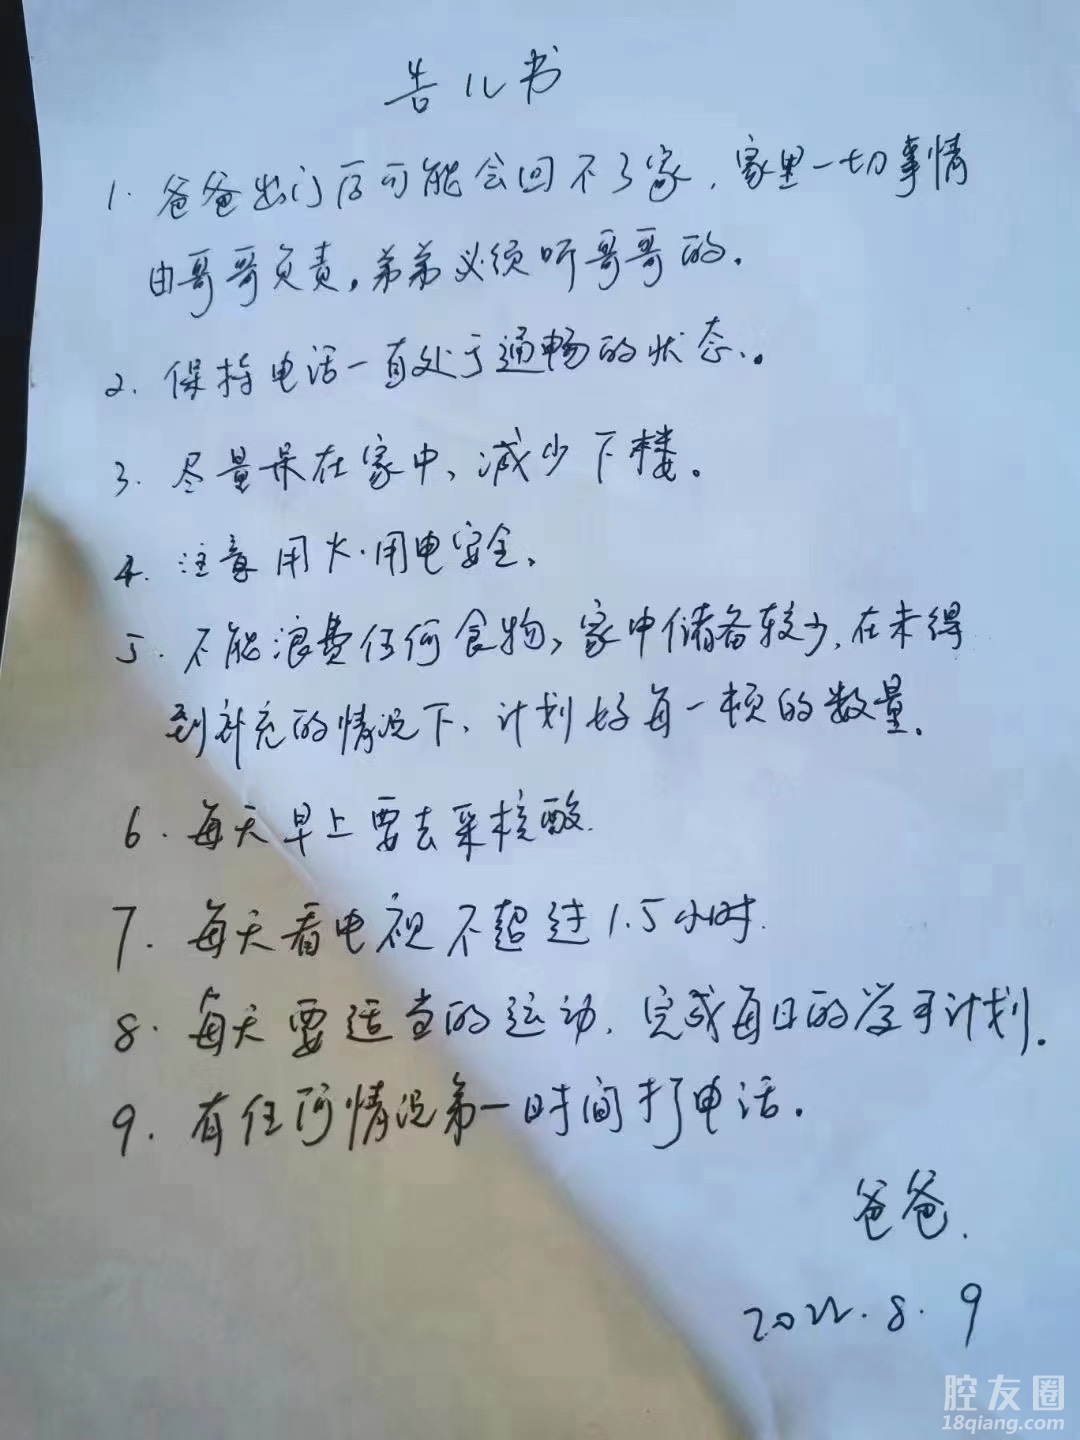 告儿书
1. 爸爸出门后可能会回不了家，家里一切事情
由哥哥负责，弟弟必须听哥哥的。
2. 保持电话一直处于通畅的状态。
3. 尽量呆在家中，减少下楼。
4. 注意用火、用电安全。
5. 不能浪费任何食物，家中储备较少，在未得
到补充的情况下，计划好每一顿的数量。
6. 每天早上要去采核酸.
7. 每天看电视不超过1.5小时.
8. 每天要适当的运动，完成每日的学习计划。
9. 有任何情况第一时间打电话。
爸爸.
2022.8.9
腔友圈
18qiang.com